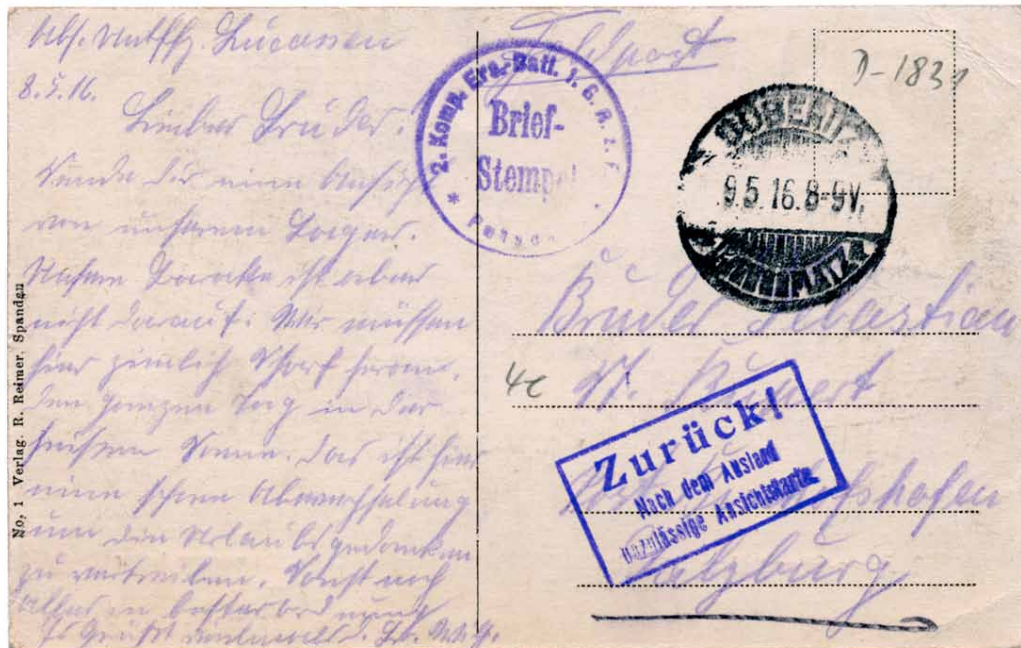 Abs. Untffz. Lucassen
8.5.16.
Lieber Bruder!
Sende dir eine Ansicht
von unserem Lager.
Unsere Baracke ist aber
nicht darauf. Wir müssen
hier ziemlich scharf heran.
den ganzen Tag in der
heißen Sonne. Das ist hier
eine schöne Abwechselung
um die Urlaubsgedanken
zu vertreiben. Sonst noch
Alles in bester Ordnung
Es Grüßt vielmals d. Br.
No. 1 Verlag. R. Reimer, Spandau
Feldpost
2. Komp. Ers.-Batl. 1. G. R. z. F.
Brief-
Stempel
Potsd
D-1831
DÖBERITZ
9.5.16.8-9V.
PLATZ
Bruder Sebastian
4c
St. Rupert
Zurück!
Nach dem Ausland
unzulässige Ansichtskarte
Post Bischofshofen
Salzburg